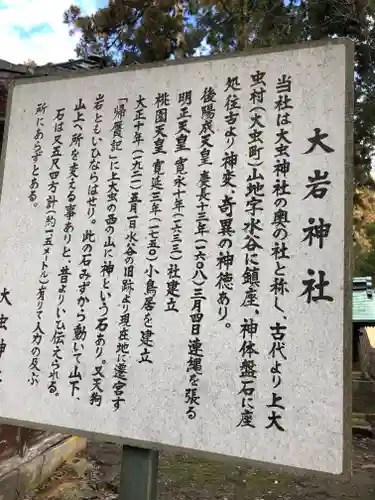 大岩神社
当社は大虫神社の奥の社と称し、古代より上大
虫村（大虫町）山地字水谷に鎮座、神体盤石に座
処往古より神変、奇異の神徳あり。
後陽成天皇 慶長十三年（一六〇八）三月四日連縄を張る
明正天皇 寛永十年（一六三三）社建立
桃園天皇 寛延三年（一七五〇）小鳥居を建立
大正十年（一九二一）五月一日水谷の旧跡より現在地に遷宮す
「帰鴈記」に上大虫の西の山に神といふ石あり。又天狗
岩ともいひならはせり。此の石みずから動いて山下、
山上へ所を変える事ありと、昔よりいひ伝えられる。
石は又五尺四方計（約一五メートル）有りて人力の及ぶ
所にあらずとある。
大虫神